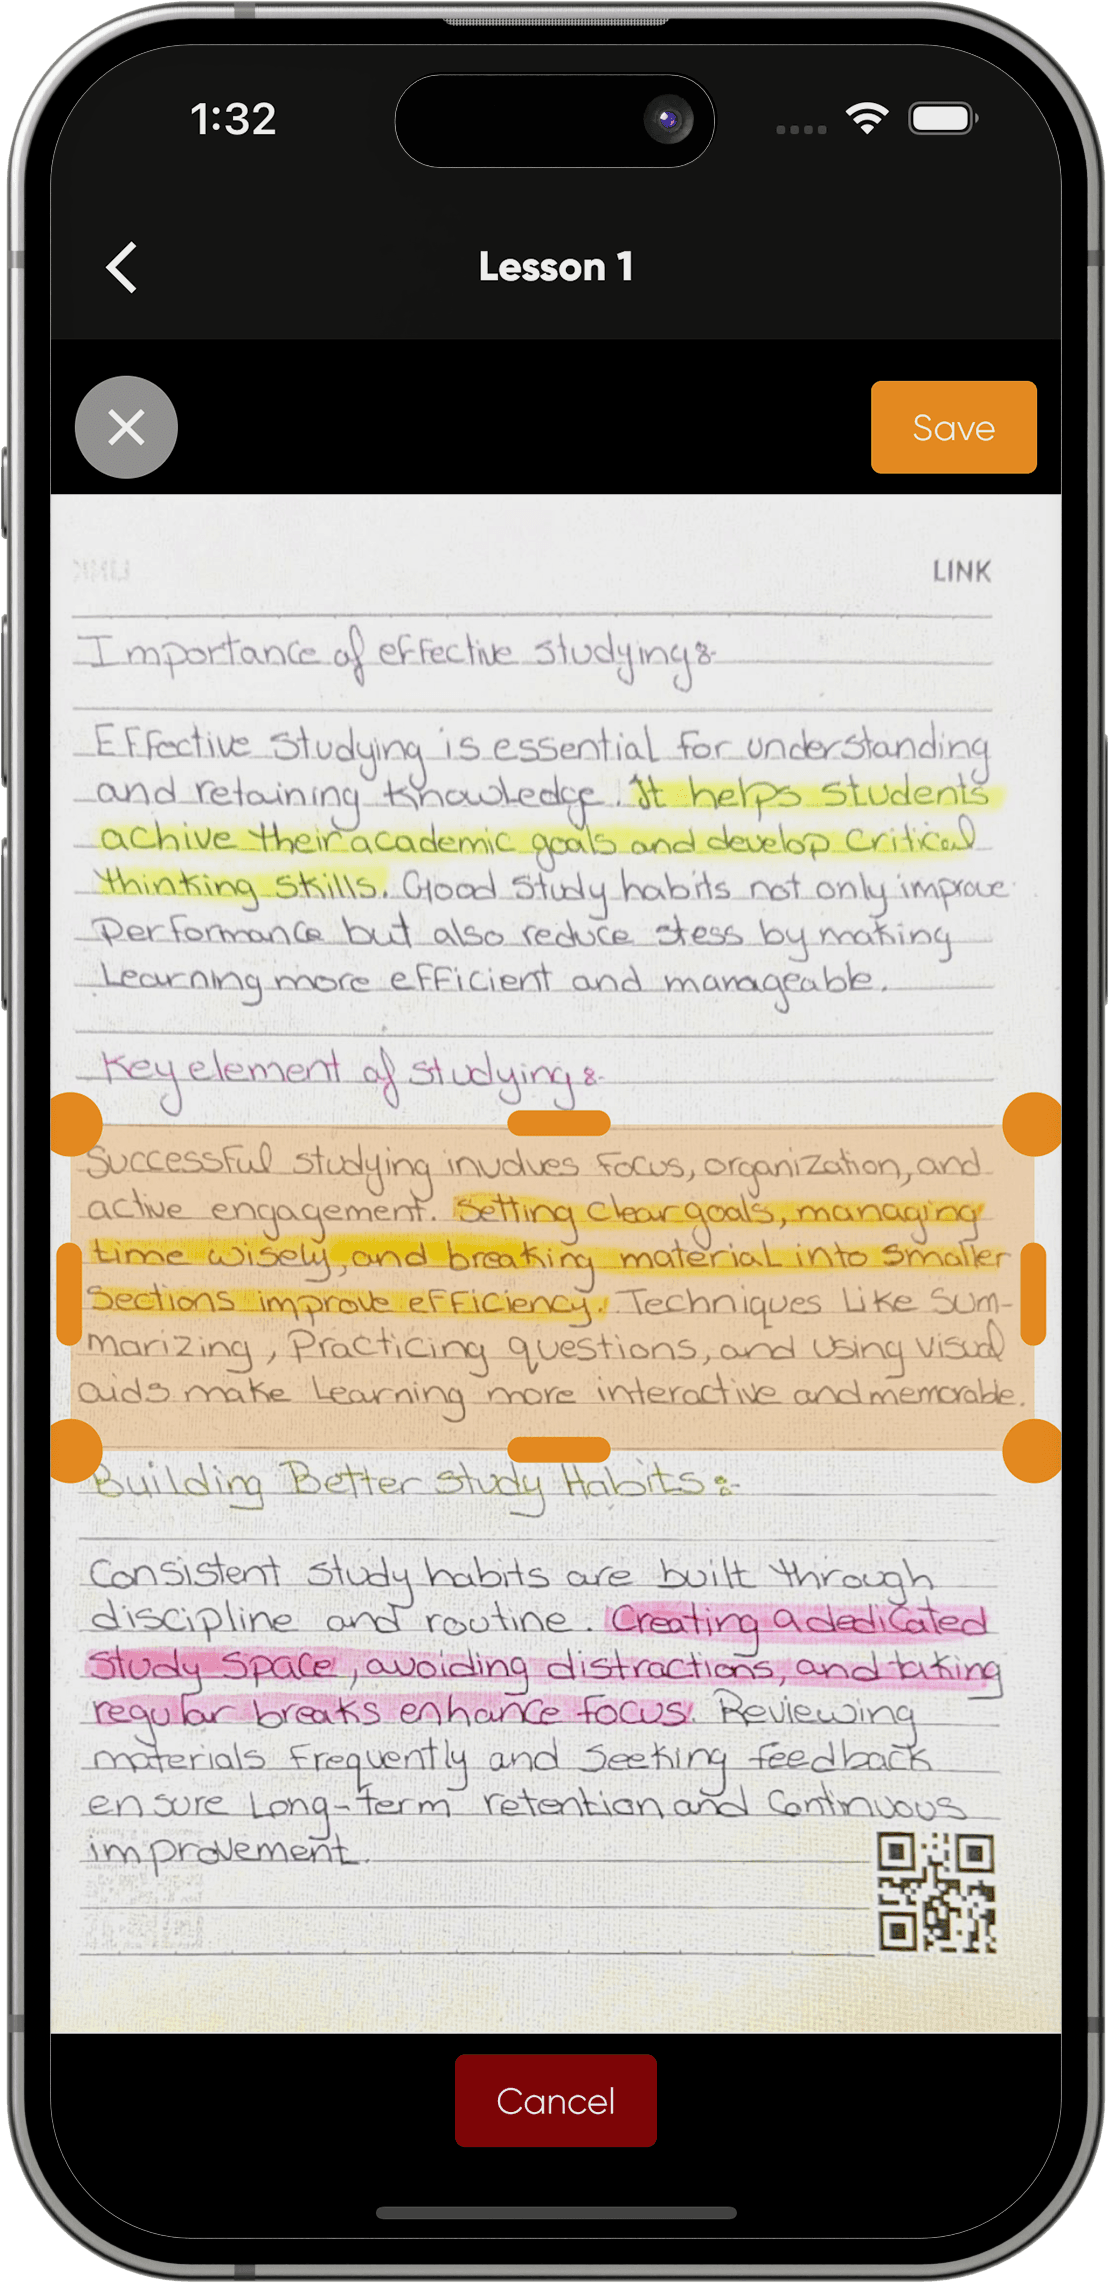 1:32
Lesson 1
Save
LINK
Importance of effective studying:-
Effective studying is essential for understanding
and retaining knowledge. It helps students
achive their academic goals and develop critical
thinking skills. Good study habits not only improve
performance but also reduce stess by making
Learning more efficient and manageable.
Key element of studying:-
Successful studying involves focus, organization, and
active engagement. Setting clear goals, managing
time wisely, and breaking material into smaller
Sections improve efficiency. Techniques Like Sum-
marizing, Practicing questions, and using visual
aids make Learning more interactive and memorable.
Building Better Study Habits:-
Consistent study habits are built through
discipline and routine. Creating a dedicated
study space, avoiding distractions, and taking
regular breaks enhance focus. Reviewing
materials frequently and seeking feedback
ensure Long-term retention and Continuous
improvement.
Cancel